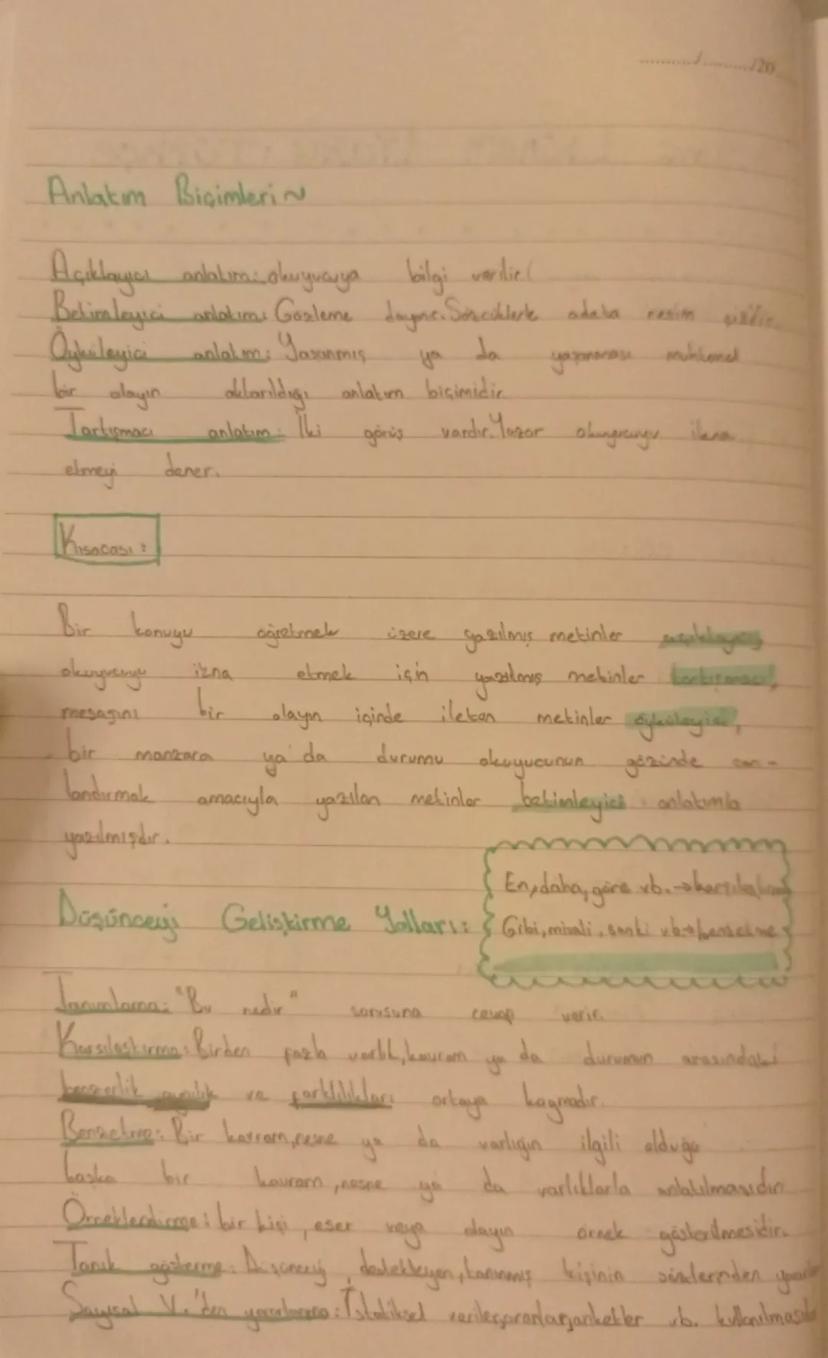 ......../......../20
Anlatım Biçimleri~
Açıklayıcı anlatım: okuyucuya bilgi verilir.
Betimleyici anlatım: Gözleme dayanır. Sözcüklerle adeta resim çizilir.
Öyküleyici anlatım: Yaşanmış ya da yaşanması muhtemel
bir olayın aktarıldığı anlatım biçimidir
Tartışmacı anlatım: İki görüş vardır. Yazar okuyucuyu ikna
etmeyi dener.
Kısacası:
Bir konuyu öğretmek üzere yazılmış metinler açıklayıcı,
okuyucuyu ikna etmek için yazılmış metinler tartışmacı,
mesajını bir olayın içinde ileten metinler öyküleyici,
bir manzara ya da durumu okuyucunun gözünde can-
landırmak amacıyla yazılan metinler betimleyici anlatımla
yazılmışdır.
En, daha, göre vb. → karşılaştırma
Düşünceyi Geliştirme Yolları:
Gibi, misali, sanki vb → benzetme
Tanımlama: "Bu nedir" sorusuna cevap verir.
Karşılaştırma: Birden fazla varlık, kavram ya da durumun arasındaki
benzerlik ve farklılıkları ortaya koymadır.
Benzetme: Bir kavram, nesne ya da varlığın ilgili olduğu
başka bir kavram, nesne ya da varlıklarla anlatılmasıdır
Örneklendirme: bir kişi, eser veya olayın örnek gösterilmesidir.
Tanık gösterme: Düşünceyi destekleyen, tanınmış kişinin sözlerinden
Sayısal V.'den yararlanma: İstatiksel veriler, oranlar, anketler vb. kullanılması